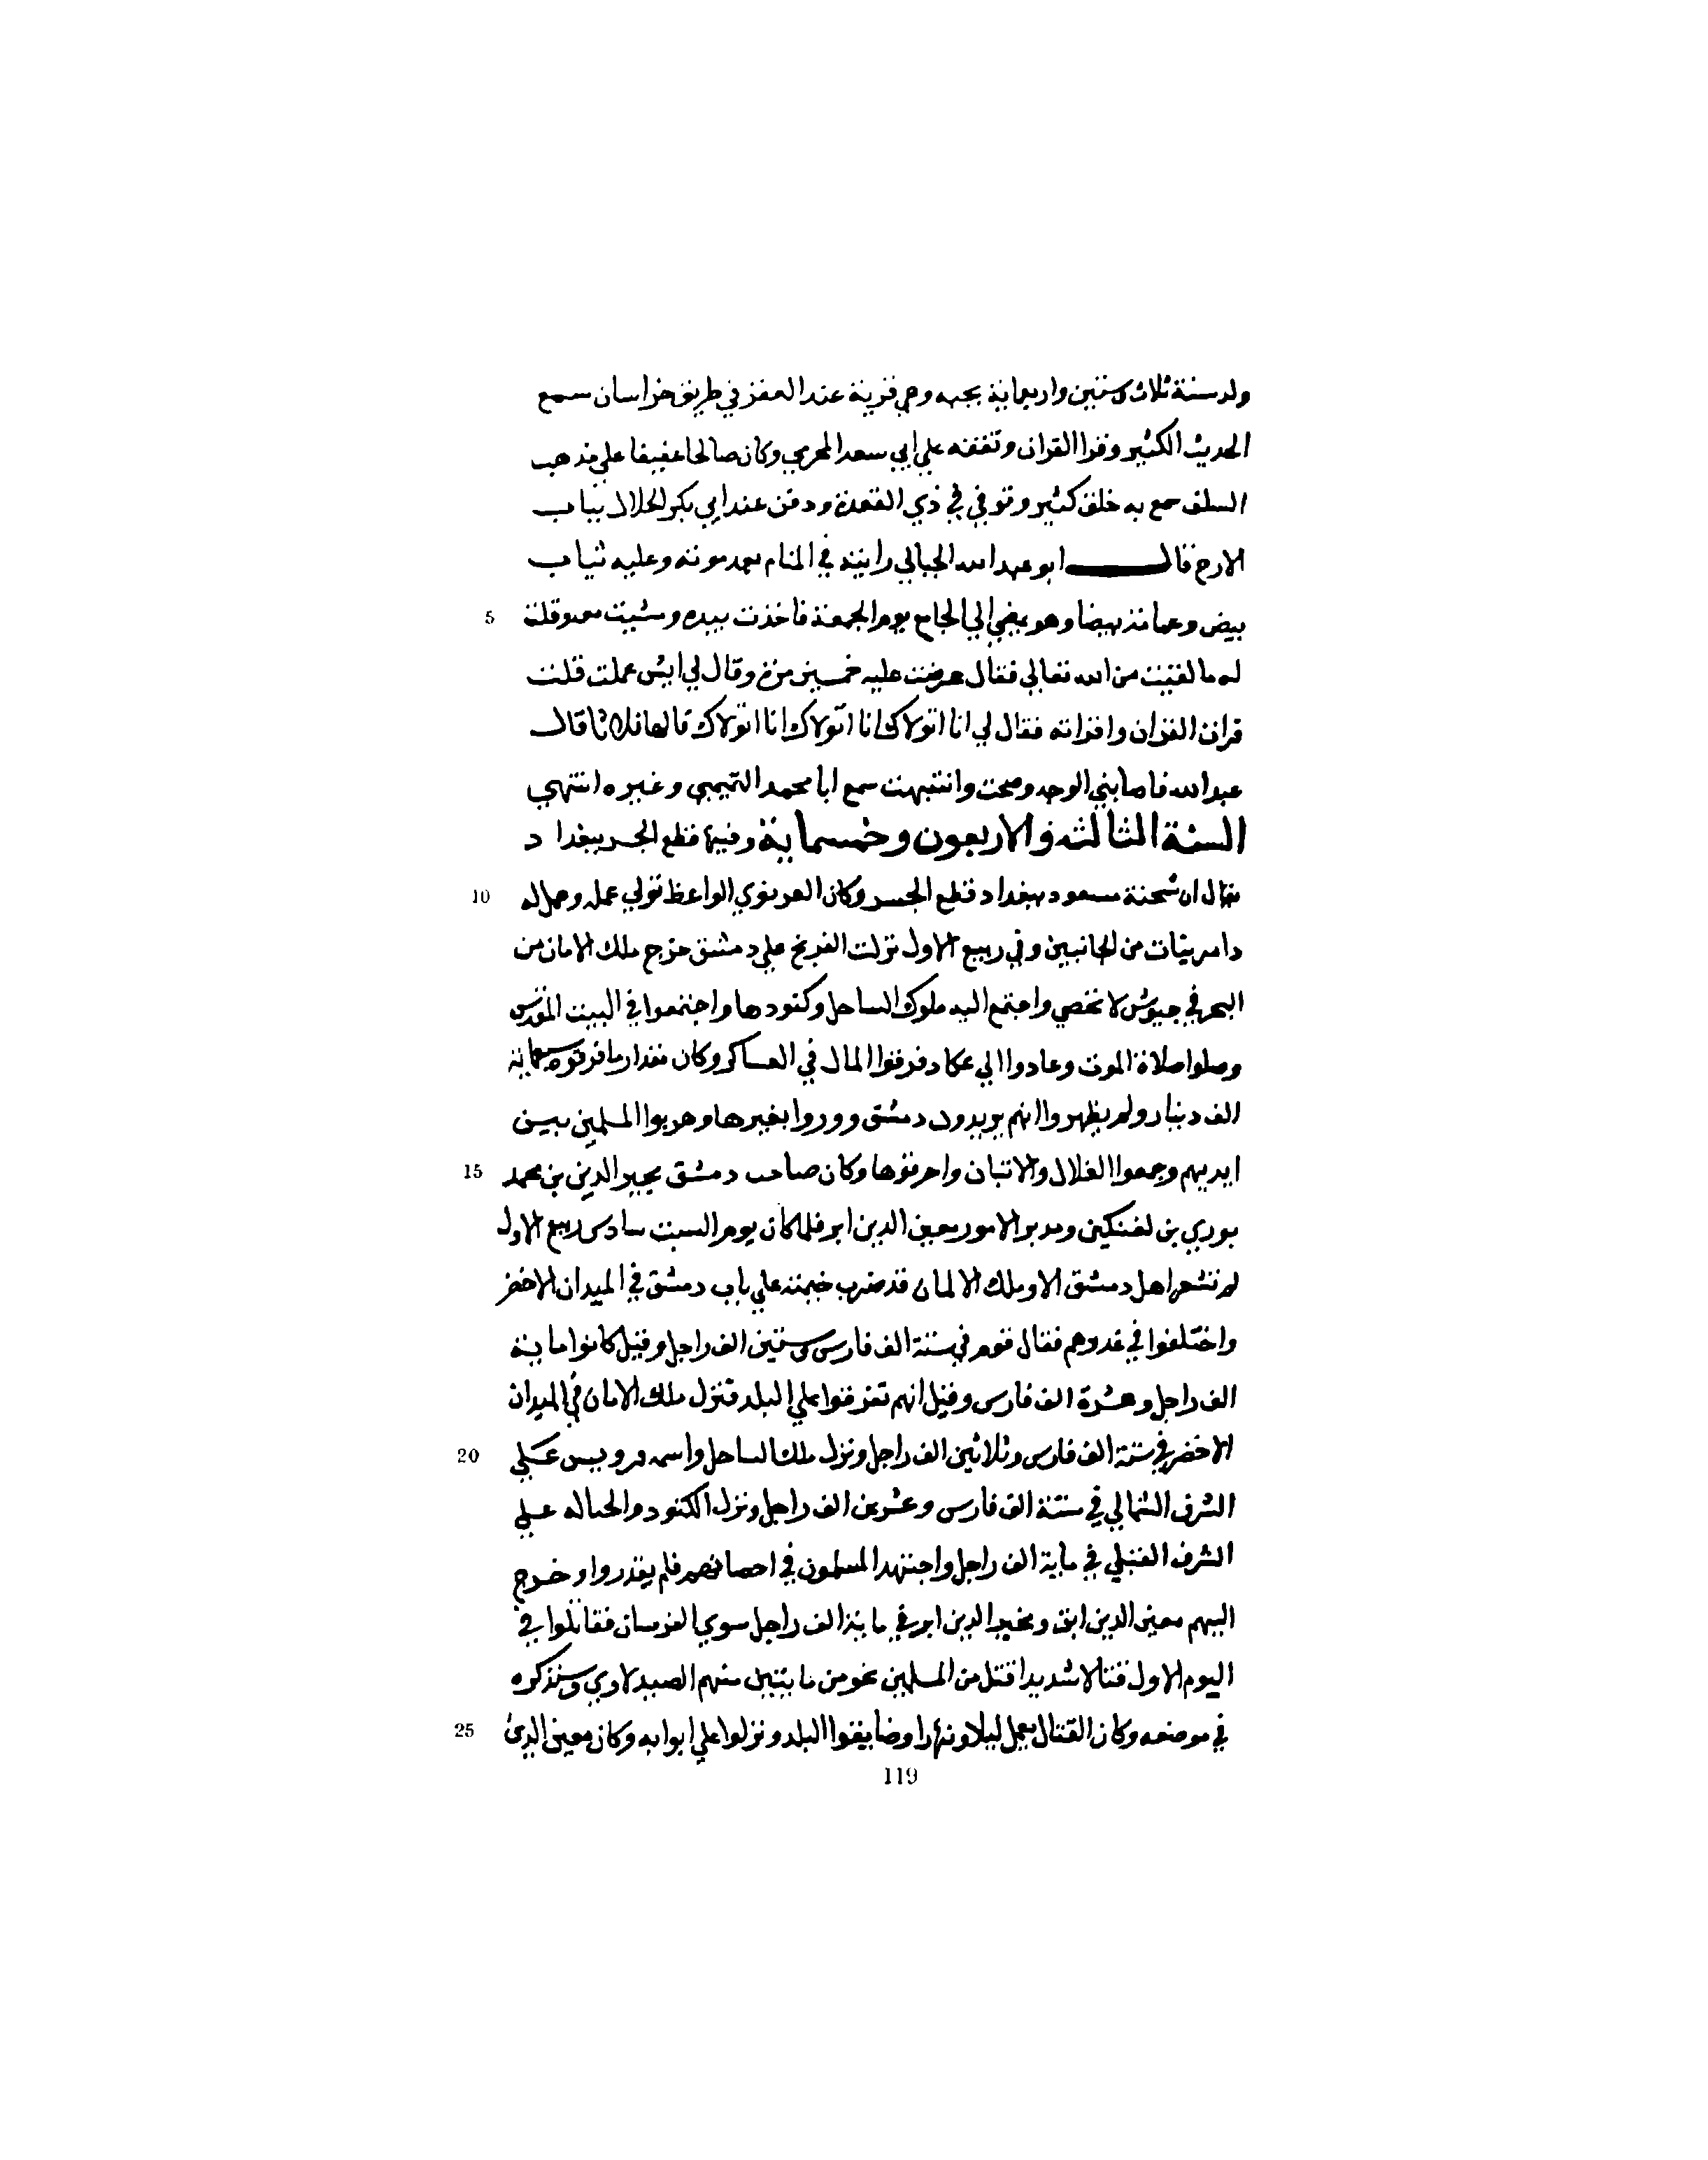 ولد سنة ثلاث وستين واربعماية بجبه وهي قرية عند العقر في طريق خراسان سمع
الحديث الكثير وقرا القران وتفقه علي ابي سعد المخرمي وكان صالحا عفيفا علي مذهب
السلف سمع به خلق كثير وتوفي في ذي القعدة ودفن عند ابي بكر الخلال بباب
الازج قال ابو عبد الله الجبالي رايته في المنام بعد موته وعليه ثياب
5 بيض وعمامة بيضا وهو يمضي الي الجامع يوم الجمعة فاخذت بيده ومشيت معه وقلت
له ما لقيت من الله تعالي فقال عرضت عليه خمسين مرة وقال لي ايش عملت قلت
قرات القران واقراته فقال لي انا اتولاك انا اتولاك انا اتولاك قالها ثلاثا قال
عبد الله فاصابني الوجد وصحت وانتبهت سمع ابا محمد التميمي وغيره انتهي
السنة الثالثه والاربعون وخمسماية وفيها قطع الجسر ببغداد
10 يقال ان شحنة مسعود ببغداد قطع الجسر وكان الغزنوي الواعظ تولي عمله وعمل له
درابزينات من الجانبين وفي ربيع الاول نزلت الفرنج علي دمشق خرج ملك الامان من
البحر في جيوش لا تحصي واجتمع اليه ملوك الساحل وكنودها واجتمعوا في البيت المقدس
وصلوا صلاة الموت وعادوا الي عكا وفرقوا المال في العساكر وكان مقدار ما فرقوه سبعماية
الف دينار ولم يظهروا انهم يريدون دمشق ووروا بغيرها وهربوا المسلمين بين
15 ايديهم وجمعوا الغلال والاتبان واحرقوها وكان صاحب دمشق مجير الدين بن محمد
بوري بن لغتكين ومدبر الامور معين الدين انر فلما كان يوم السبت سادس ربيع الاول
لم تشعر اهل دمشق الا وملك الالمان قد ضرب خيمته علي باب دمشق في الميدان الاخضر
واختلفوا في عددهم فقال قوم في ستة الف فارس وستين الف راجل وقيل كانوا ماية
الف راجل وعشرة الف فارس وقيل انهم تفرقوا علي البلد فنزل ملك الامان في الميدان
20 الاخضر في ستة الف فارس وثلاثين الف راجل ونزل ملك الساحل واسمه مرويس علي
الشرف الشمالي في ستة الف فارس وعشرين الف راجل ونزل الكنود والخياله علي
الشرف القبلي في ماية الف راجل واجتهد المسلمون في احصائهم فلم يقدروا وخرج
اليهم معين الدين ابق ومجير الدين انر في ماية الف راجل سوي الفرسان فقاتلوا في
اليوم الاول قتالا شديدا قتل من المسلمين نحو من مايتين منهم الفندلاوي وسنذكره
25 في موضعه وكان القتال يعمل ليلا ونهارا وضايقوا البلد ونزلوا علي ابوابه وكان معين الدين
119